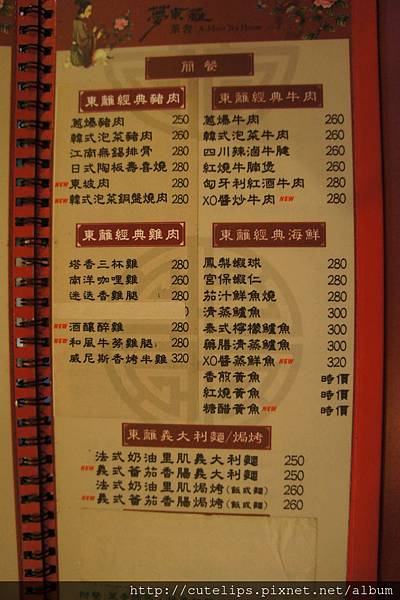 夢東籬
茶書 A-Maze Tea House
簡餐
東籬經典豬肉
蔥爆豬肉 250
韓式泡菜豬肉 260
江南無錫排骨 280
日式陶板壽喜燒 280
NEW 東坡肉 280
NEW 韓式泡菜銅盤燒肉 280
東籬經典牛肉
蔥爆牛肉 260
韓式泡菜牛肉 260
四川辣滷牛腱 260
紅燒牛腩煲 280
匈牙利紅酒牛肉 280
XO醬炒牛肉 NEW 280
東籬經典雞肉
塔香三杯雞 280
南洋咖哩雞 260
迷迭香雞腿 280
NEW 酒釀醉雞 280
NEW 和風牛蒡雞腿 280
威尼斯香烤半雞 320
東籬經典海鮮
鳳梨蝦球 280
宮保蝦仁 280
茄汁鮮魚燒 280
清蒸鱸魚 300
泰式檸檬鱸魚 300
藥膳清蒸鱸魚 300
XO醬蒸鮮魚 NEW 320
香煎黃魚 時價
紅燒黃魚 時價
糖醋黃魚 NEW 時價
東籬義大利麵/焗烤
法式奶油里肌義大利麵 250
NEW 義式蕃茄香腸義大利麵 250
法式奶油里肌焗烤(飯或麵) 260
NEW 義式蕃茄香腸焗烤(飯或麵) 260
http://cutelips.pixnet.net/album